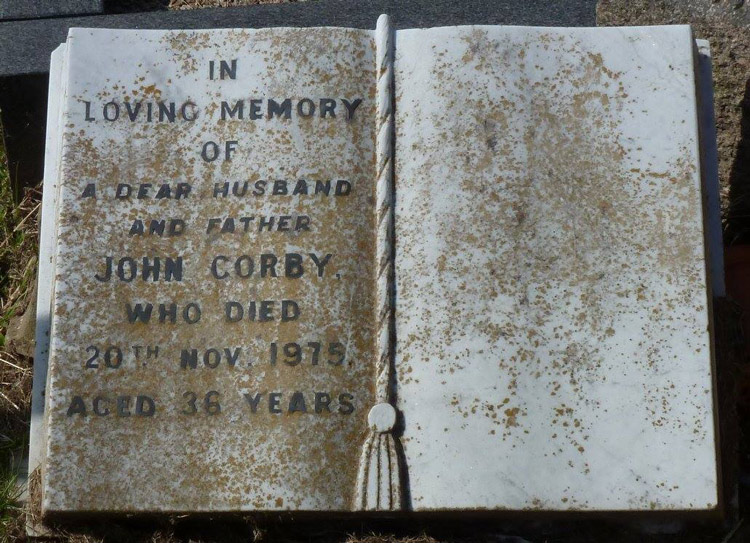 IN
LOVING MEMORY
OF
A DEAR HUSBAND
AND FATHER
JOHN CORBY,
WHO DIED
20TH NOV. 1975,
AGED 36 YEARS